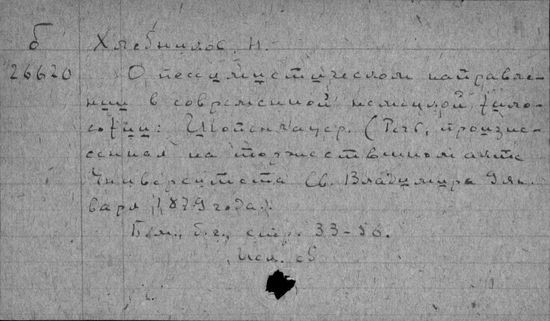 б Хлебников, Н.
26620 О пессимистическом направле-
нии в современной немецкой фило-
софии: Шопенгауер. (Речь, произне-
сенная на торжественном акте
Университета Св. Владимира 9 ян-
варя 1879 года).
Б.м., б.г., стр. 33-56.